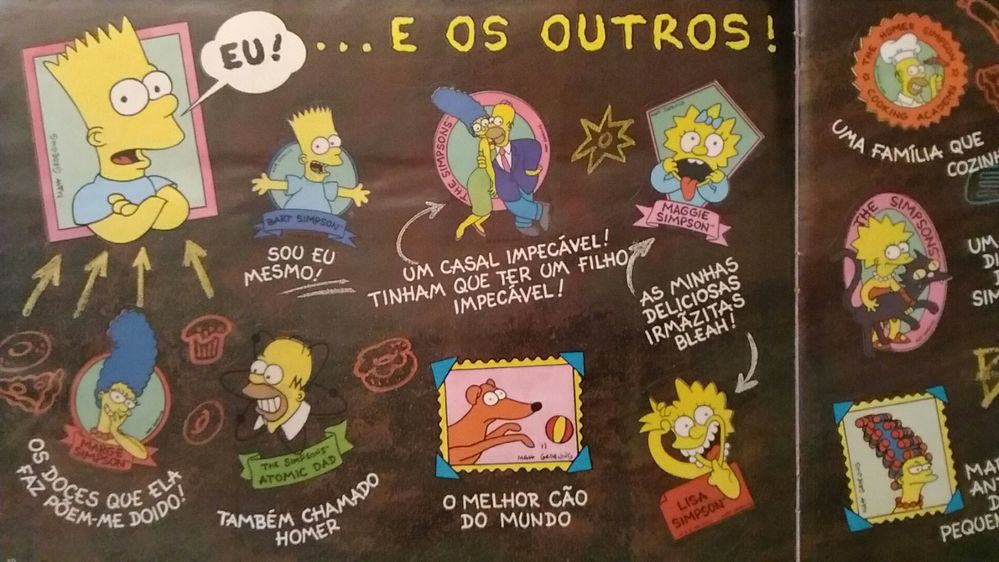 EU!
...E OS OUTROS!
MATT GROENING
BART SIMPSON™
SOU EU
MESMO!
THE SIMPSONS
UM CASAL IMPECÁVEL!
TINHAM QUE TER UM FILHO
IMPECÁVEL!
MAGGIE
SIMPSON™
AS MINHAS
DELICIOSAS
IRMÃZITAS
BLEAH!
MARGE
SIMPSON™
OS DOCES QUE ELA
FAZ PÕEM-ME DOIDO!
THE SIMPSONS
ATOMIC DAD
TAMBÉM CHAMADO
HOMER
MATT GROENING
O MELHOR CÃO
DO MUNDO
LISA
SIMPSON™
THE HOMER SIMPSON
COOKING ACADEMY
UMA FAMÍLIA QUE
COZINH
THE SIMPSONS
UM
DI
SIM
MATT GROENING
MA
AN
D
PEQUEN